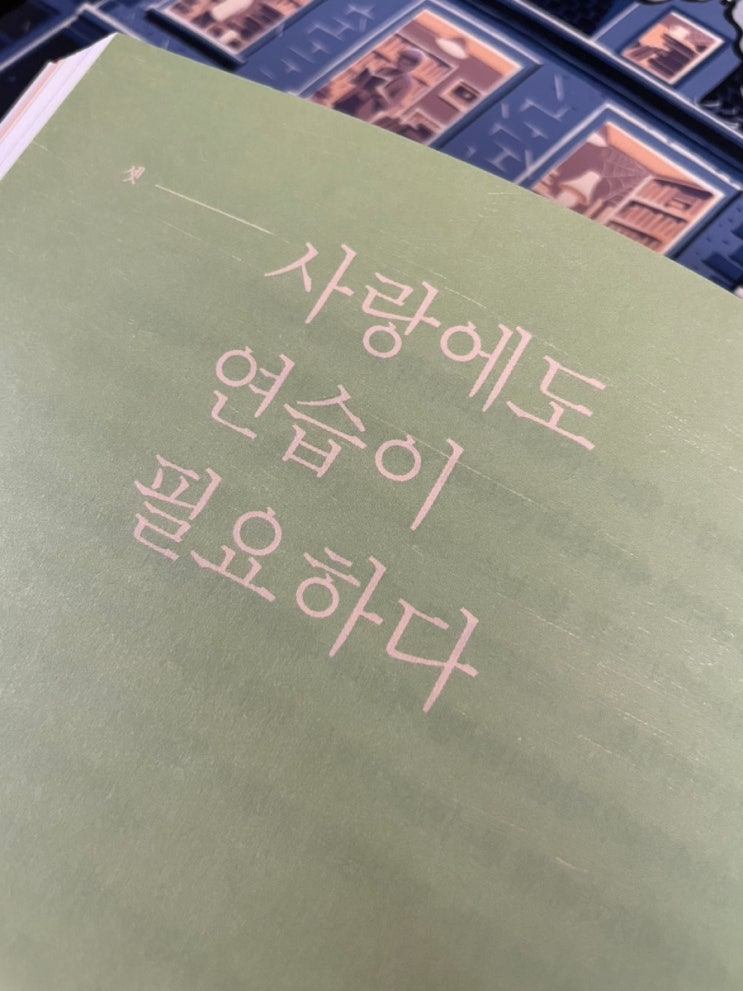 셋
사랑에도
연습이
필요하다